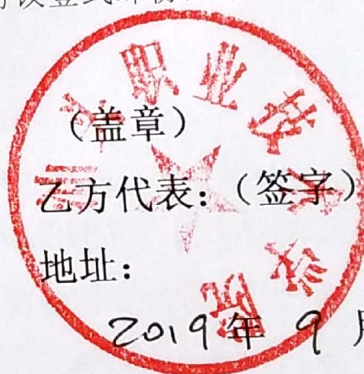 （盖章）
乙方代表：（签字）
地址：
2019年 9月
职业技术学院